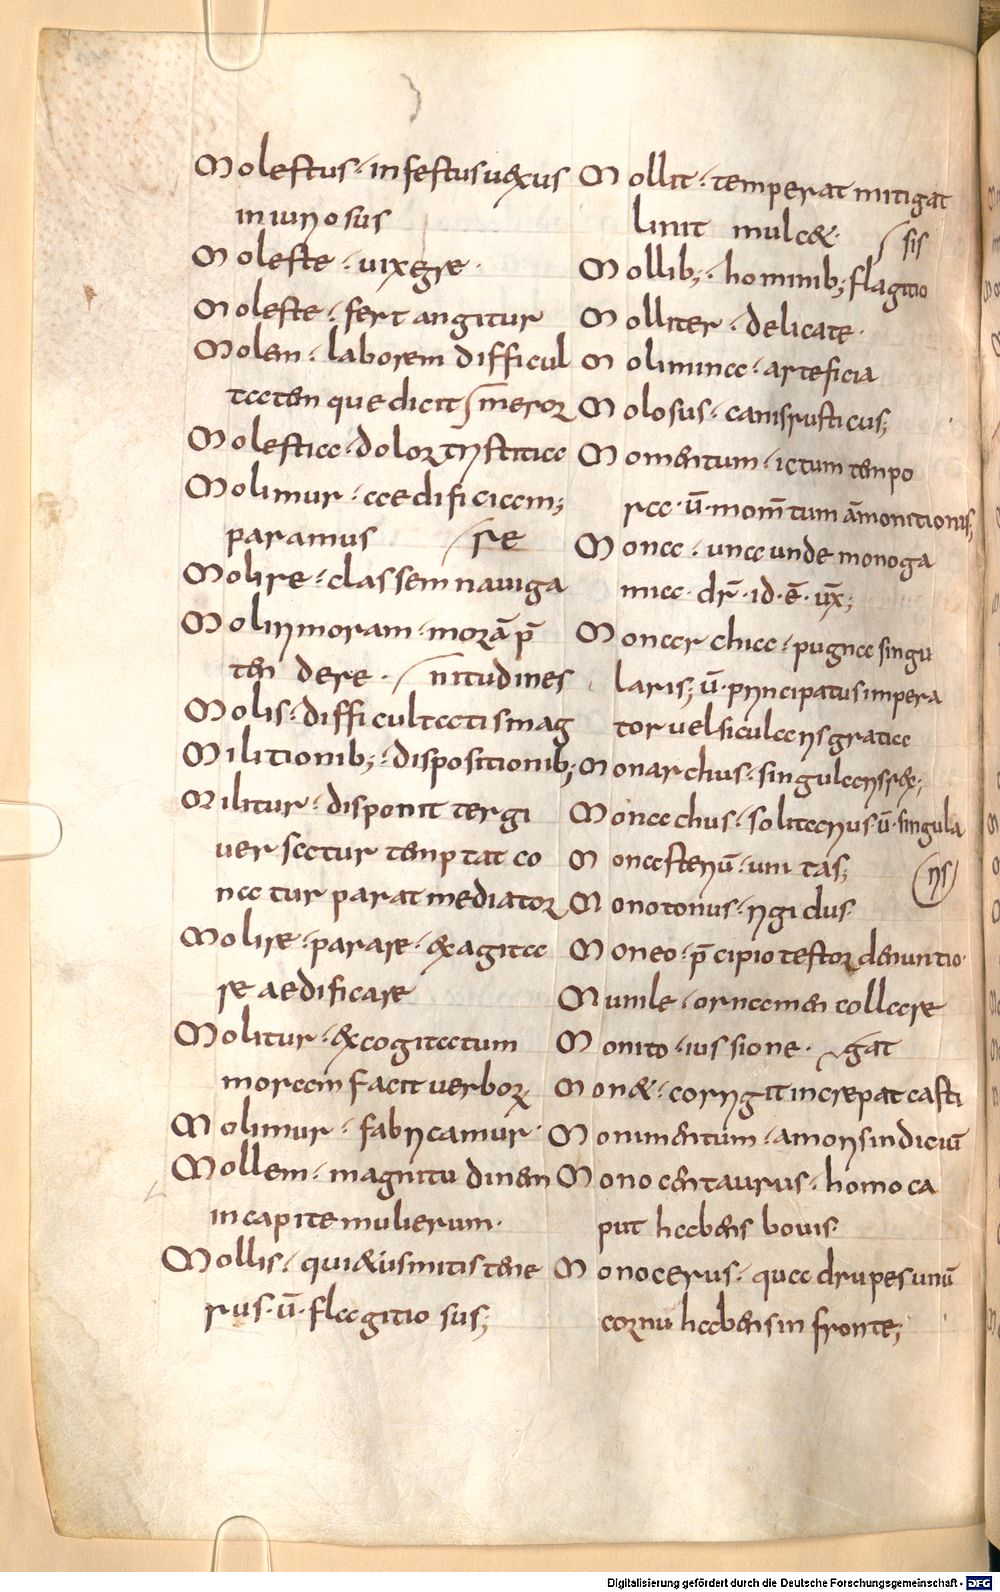 Molestus · infestus uexus
iniuriosus
Moleste · uix egre ·
Moleste · fert angitur
Molem · laborem difficul
tatem que dicit meror
Molestia · dolor tristitia
Molimur · aedificicam;
paramus re
Molire · classem nauiga
Moliri moram · morā p̄
ten dere · nitudines
Molis · difficultatis mag
Militionib; · dispositionib;
Militur · disponit tergi
uersatur temptat co
natur parat mediator
Molire · parare · exagita
re aedificare
Molitur · excogitatum
moram facit uerboꝝ
Molimur · fabricamur ·
Mollem · magnitudinem
in capite mulierum ·
Mollis · qui & iis mitis tene
rus · ū · flagitiosus;
Mollit · temperat mitigat
linit mulc& · sis
Mollib; · hominib; flagitio
Molliter · delicate ·
Molimina · arteficia
Molosus · canis rusticus;
Momentum · ictum tempo
ra · ū · mom̄tum āmonitionis;
Mona · una unde monoga
mia · dr̄ · id · ē · ux̄;
Monarchia · pugna singu
laris; ū · principatus impera
tor uel sicularis gratia
Monarchus · singularis r&;
Monachus · solitarius ū · singula
Monasteriū · uni tas; ris
Monotonus · rigidus ·
Moneo · p̄cipio testor denuntio ·
Munile · ornamen collare
Monito · iussione · gat
Mon& · corrigit increpat casti
Monimentum · amoris indiciū
Monocentaurus · homo ca
put habens bouis ·
Monocerus · quadrupes unū
cornu habens in fronte;
Digitalisierung gefördert durch die Deutsche Forschungsgemeinschaft - DFG